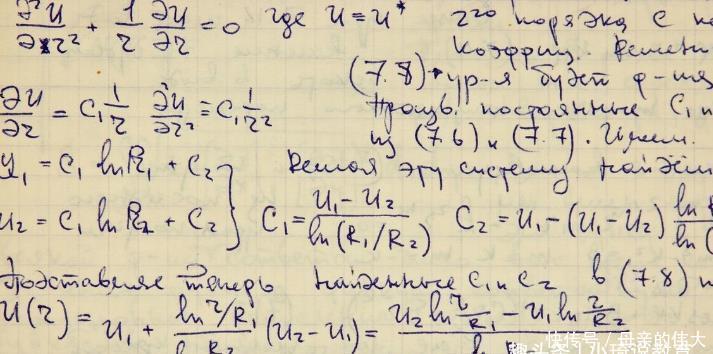 ∂²U/∂r² + 1/r ∂U/∂r = 0 где U = U* 2го порядка с
коэффиц. Решени
(7.8) ур-я будет ф-ия
∂U/∂r = C₁ 1/r ∂U/∂r² = C₁ 1/r²
постоянные C₁ и
из (7.6) и (7.7). Имеем.
U₁ = C₁ ln R₁ + C₂ Решая эту систему найдем
U₂ = C₁ ln R₂ + C₂ } C₁ = (U₁ − U₂)/ln(R₁/R₂) C₂ = U₁ − (U₁ − U₂) ln R / ln (
Подставляя теперь найденные C₁ и C₂ в (7.8) п
U(r) = U₁ + ln r/R₁ / R₂ (U₂ − U₁) = U₂ ln r/R₁ − U₁ ln r/R₂
快传号/母亲的伟大